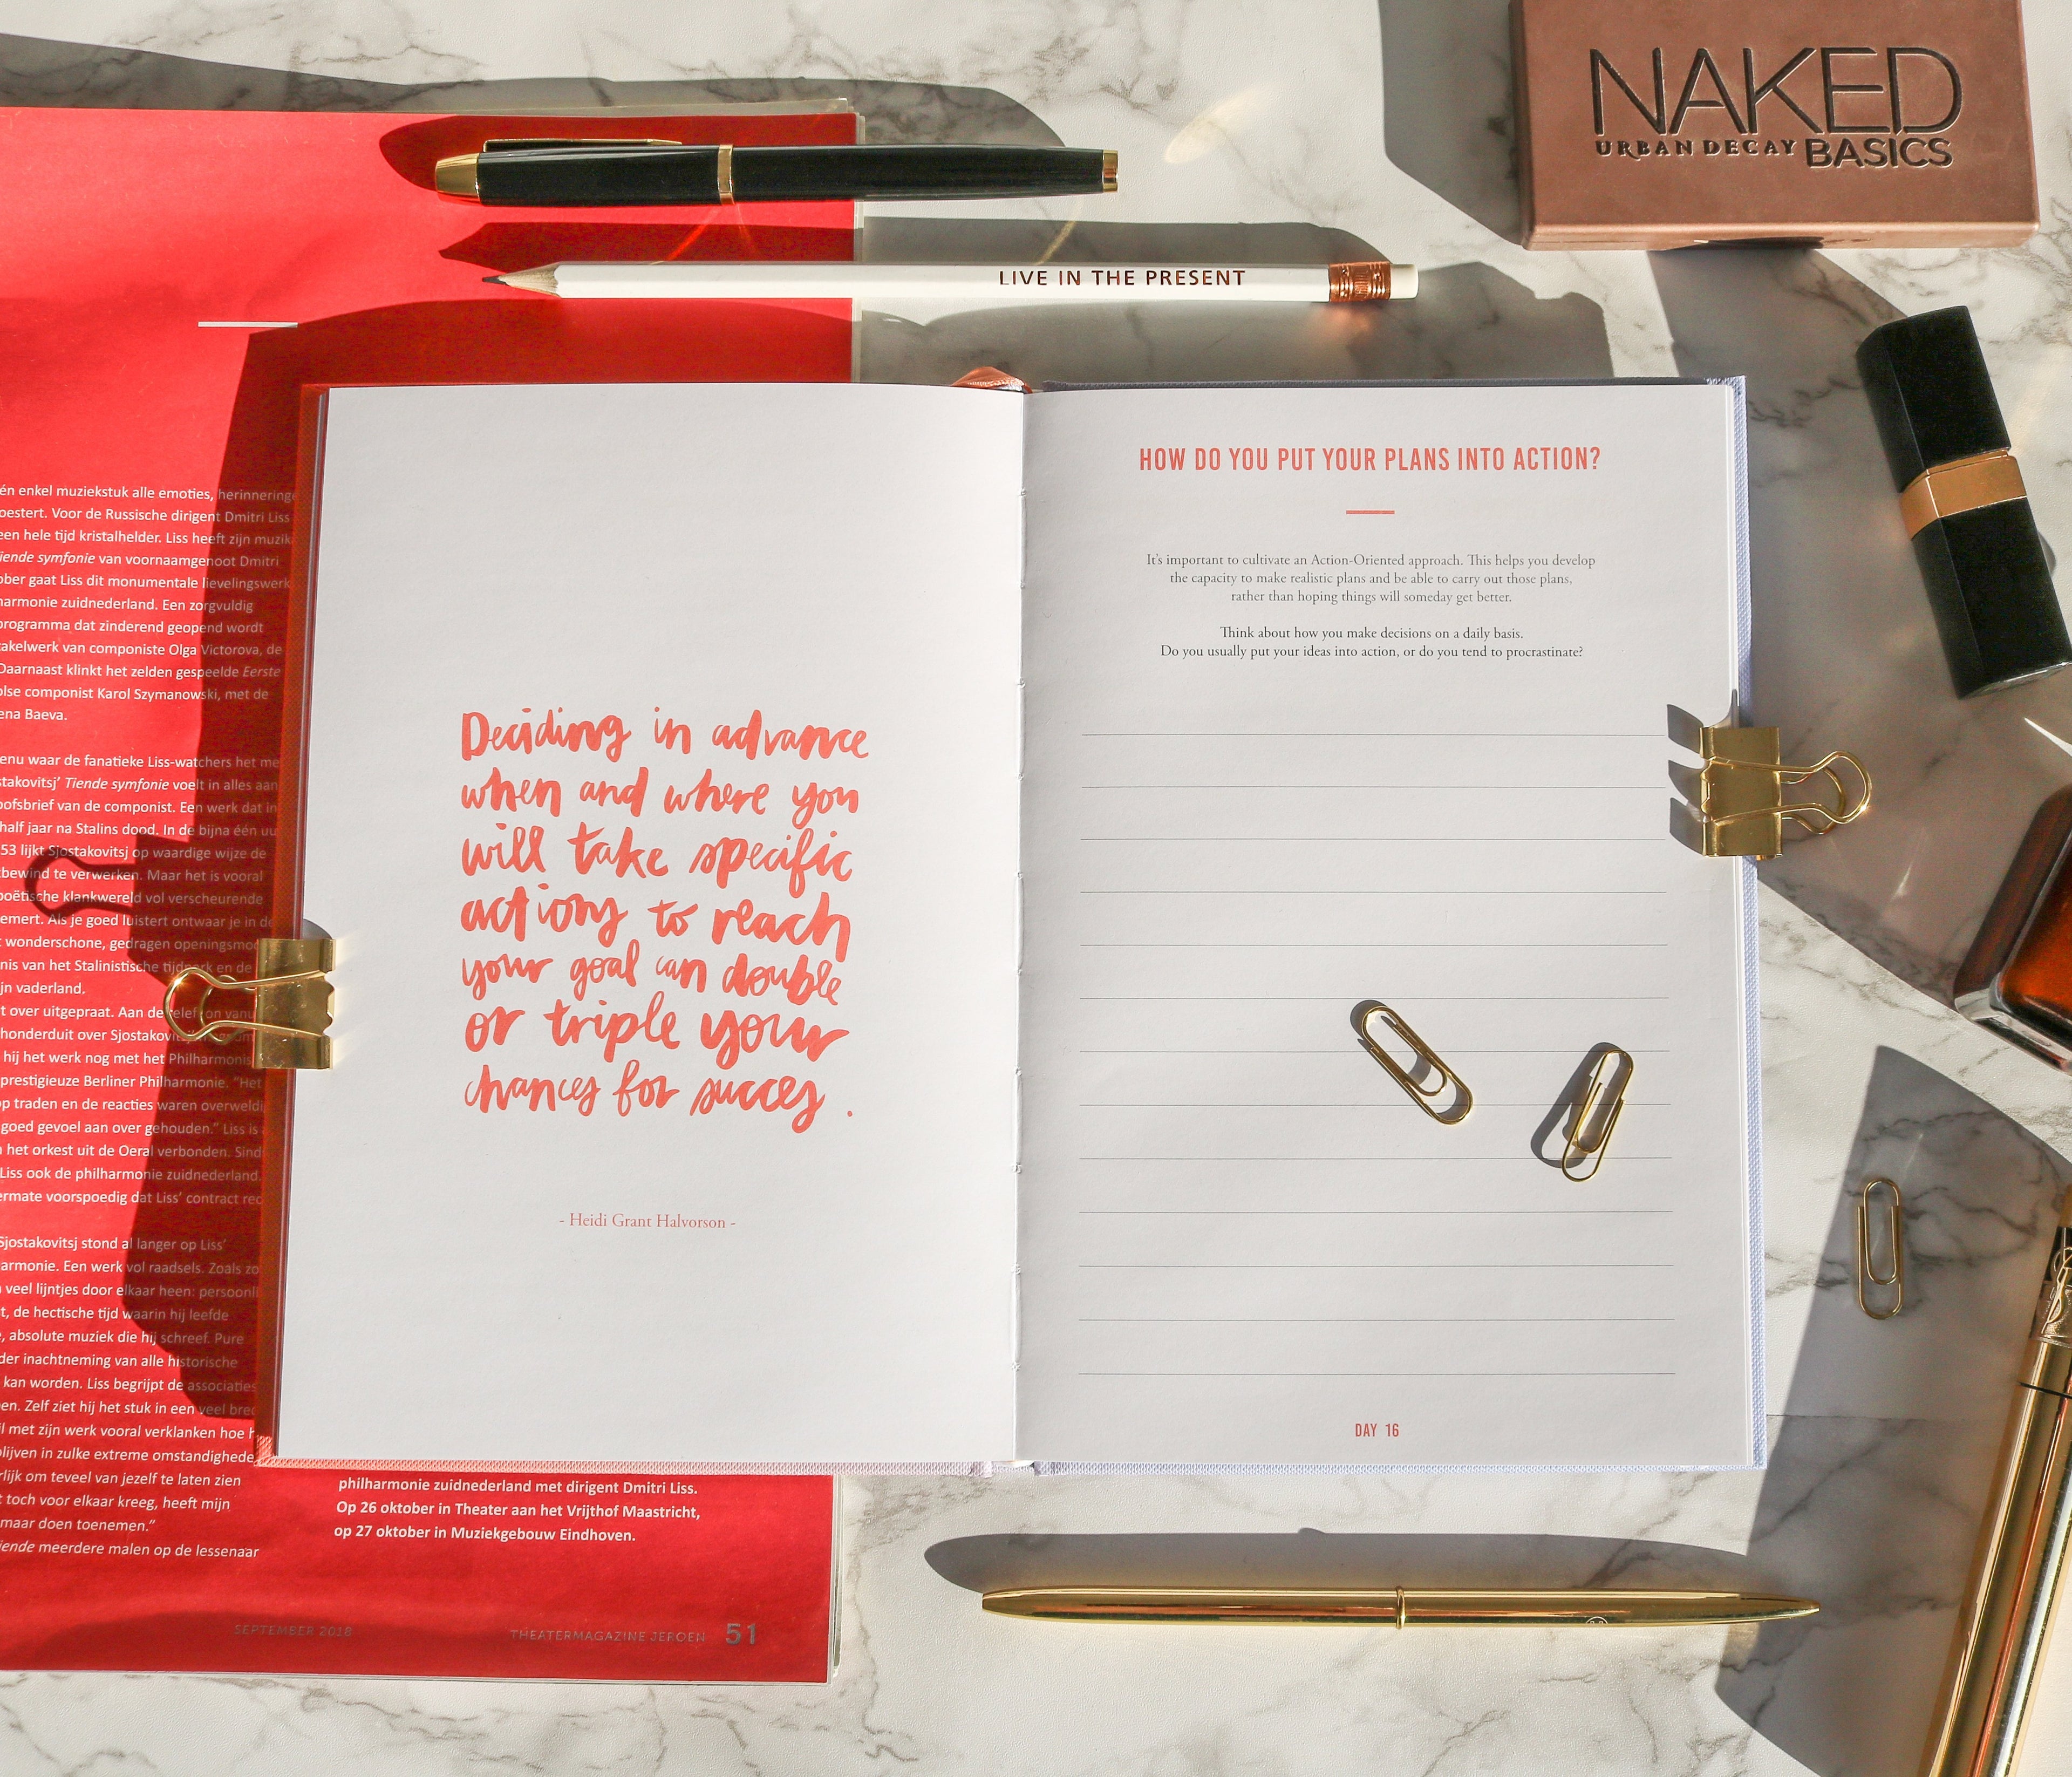 NAKED
URBAN DECAY BASICS
LIVE IN THE PRESENT
én enkel muziekstuk alle emoties, herinneringe
oestert. Voor de Russische dirigent Dmitri Liss
een hele tijd kristalhelder. Liss heeft zijn muzik
iende symfonie van voornaamgenoot Dmitri
ober gaat Liss dit monumentale lievelingswerk
harmonie zuidnederland. Een zorgvuldig
programma dat zinderend geopend wordt
takelwerk van componiste Olga Victorova, de
Daarnaast klinkt het zelden gespeelde Eerste
olse componist Karol Szymanowski, met de
ena Baeva.
enu waar de fanatieke Liss-watchers het me
stakovitsj' Tiende symfonie voelt in alles aan
oofsbrief van de componist. Een werk dat in
half jaar na Stalins dood. In de bijna één uu
53 lijkt Sjostakovitsj op waardige wijze de
bewind te verwerken. Maar het is vooral
poëtische klankwereld vol verscheurende
emert. Als je goed luistert ontwaar je in de
t wonderschone, gedragen openingsmo
nis van het Stalinistische tijdperk en de
ijn vaderland.
t over uitgepraat. Aan de telefoon vanu
honderduit over Sjostakovi
hij het werk nog met het Philharmonis
prestigieuze Berliner Philharmonie. "Het
op traden en de reacties waren overweldi
goed gevoel aan over gehouden." Liss is
n het orkest uit de Oeral verbonden. Sind
Liss ook de philharmonie zuidnederland.
ermate voorspoedig dat Liss' contract rec
Sjostakovitsj stond al langer op Liss'
armonie. Een werk vol raadsels. Zoals zo
n veel lijntjes door elkaar heen: persoonli
t, de hectische tijd waarin hij leefde
e, absolute muziek die hij schreef. Pure
der inachtneming van alle historische
kan worden. Liss begrijpt de associaties
en. Zelf ziet hij het stuk in een veel bred
il met zijn werk vooral verklanken hoe h
blijven in zulke extreme omstandighede
rlijk om teveel van jezelf te laten zien
t toch voor elkaar kreeg, heeft mijn
maar doen toenemen."
iende meerdere malen op de lessenaar
philharmonie zuidnederland met dirigent Dmitri Liss.
Op 26 oktober in Theater aan het Vrijthof Maastricht,
op 27 oktober in Muziekgebouw Eindhoven.
SEPTEMBER 2018 THEATERMAGAZINE JEROEN 51
Deciding in advance
when and where you
will take specific
actions to reach
your goal can double
or triple your
chances for succes.
- Heidi Grant Halvorson -
HOW DO YOU PUT YOUR PLANS INTO ACTION?
It's important to cultivate an Action-Oriented approach. This helps you develop
the capacity to make realistic plans and be able to carry out those plans,
rather than hoping things will someday get better.
Think about how you make decisions on a daily basis.
Do you usually put your ideas into action, or do you tend to procrastinate?
DAY 16